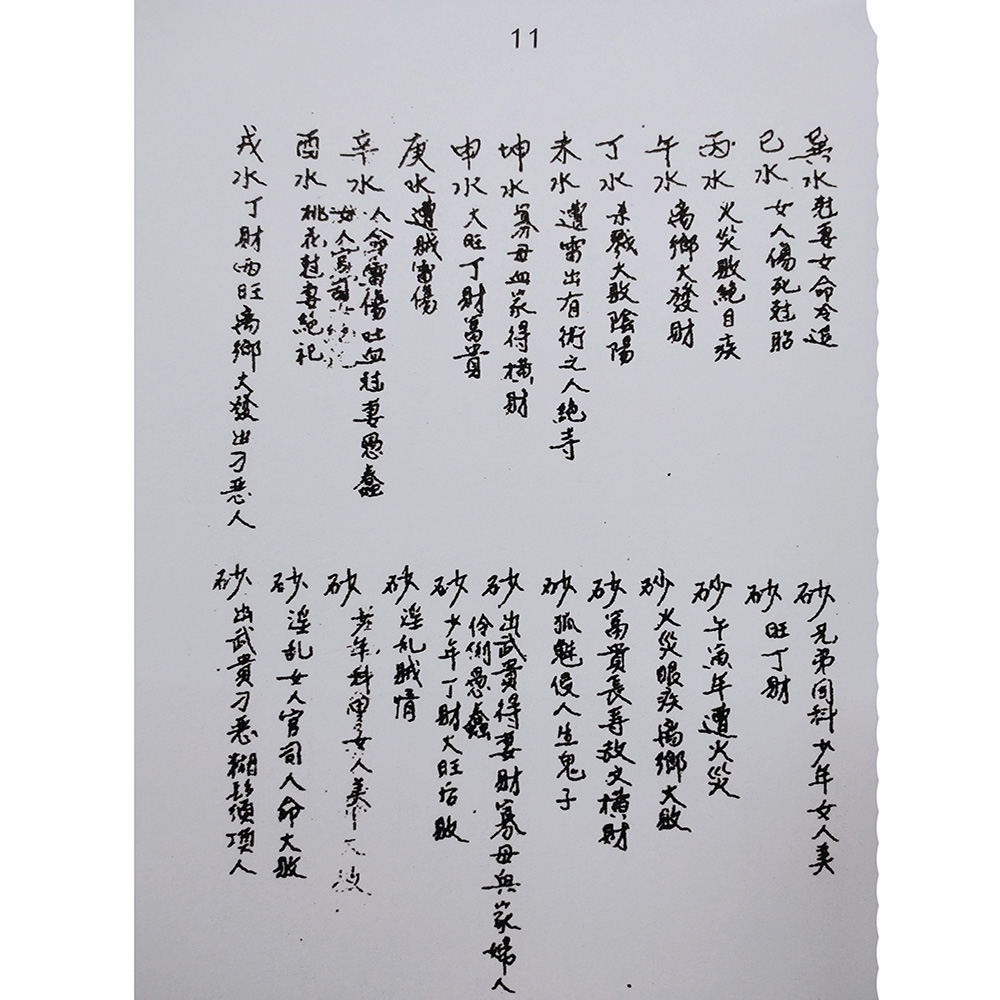 11
巽水尅妻女命冷退
巳水女人傷死尅胎
丙水火災敗絕目疾
午水離鄉大發財
丁水杀戮大敗陰陽
未水遭雷出有術之人絕寺
坤水寡母血家得橫財
申水大旺丁財富貴
庚水遭賊雷傷
辛水人命雷傷吐血尅妻愚蠢
女人官司
酉水桃花尅妻絕祀
戌水丁財两旺离鄉大發出刁惡人
砂兄弟同科少年女人美
砂旺丁財
砂午寅年遭火災
砂火災眼疾离鄉大敗
砂富貴長壽敖文橫財
砂狐魅侵人生鬼子
砂出武貴得妻財寡母與家婦人
伶俐愚蠢
砂少年丁財大旺后敗
砂淫乱賊情
砂少年科甲女人美
砂淫乱女人官司人命大敗
砂出武貴刁惡糊鬚須項人